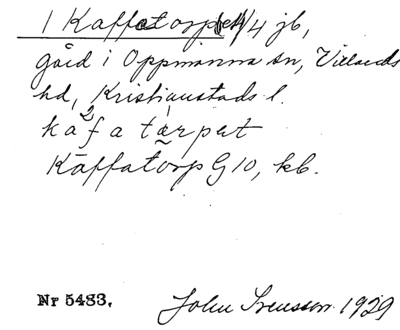 1 Kaffatorp 1/4 jb,
gård i Oppmanna sn, Villands
hd, Kristianstads l.
kafatårpat
Kaffatorp G 10, kb.
Nr 5483. John Svensson 1929